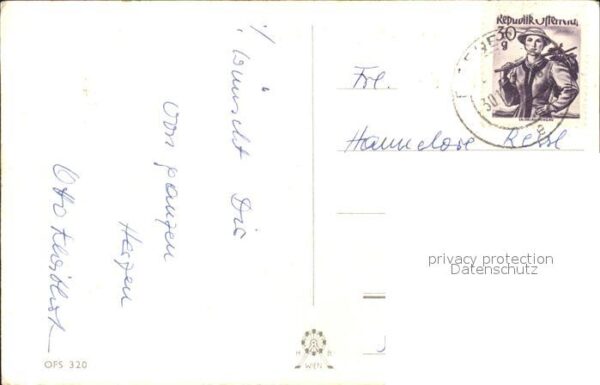 wünscht Dir
von ganzen
Herzen
Otto
OFS 320
H B
WIEN
Republik Österreich
30
g
Frl.
Hannelore
privacy protection
Datenschutz